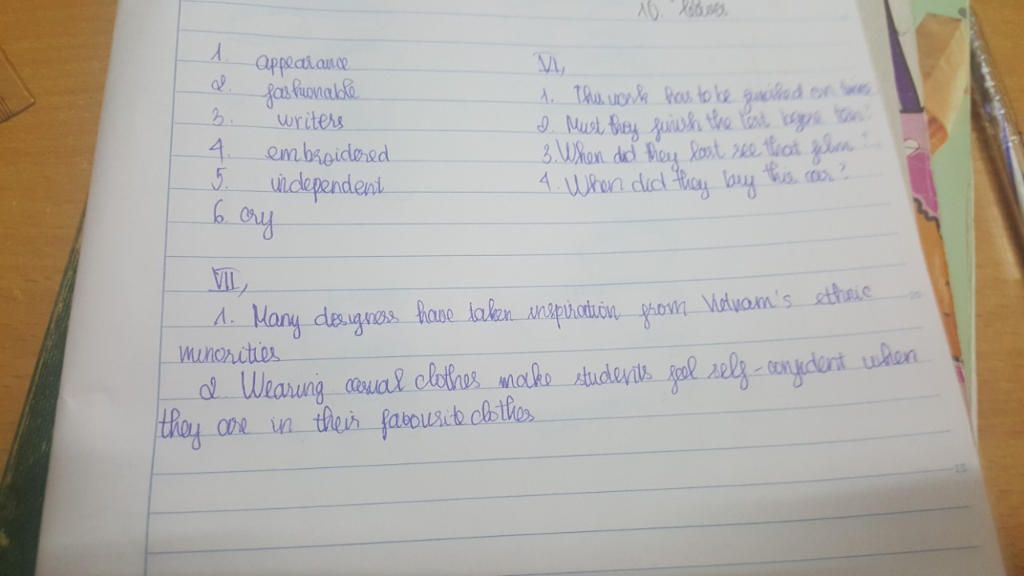 10.
1. appearance
2. fashionable
3. writers
4. embroidered
5. independent
6. cry
VI,
1. The work has to be finished on time
2. Must they finish the test before ?
3. When did they last see that film?
4. When did they buy this car?
VII,
1. Many designess have taken inspiration from Vietnam's ethnic
minorities
2. Wearing casual clothes make students feel self-confident when
they are in their favourite clothes